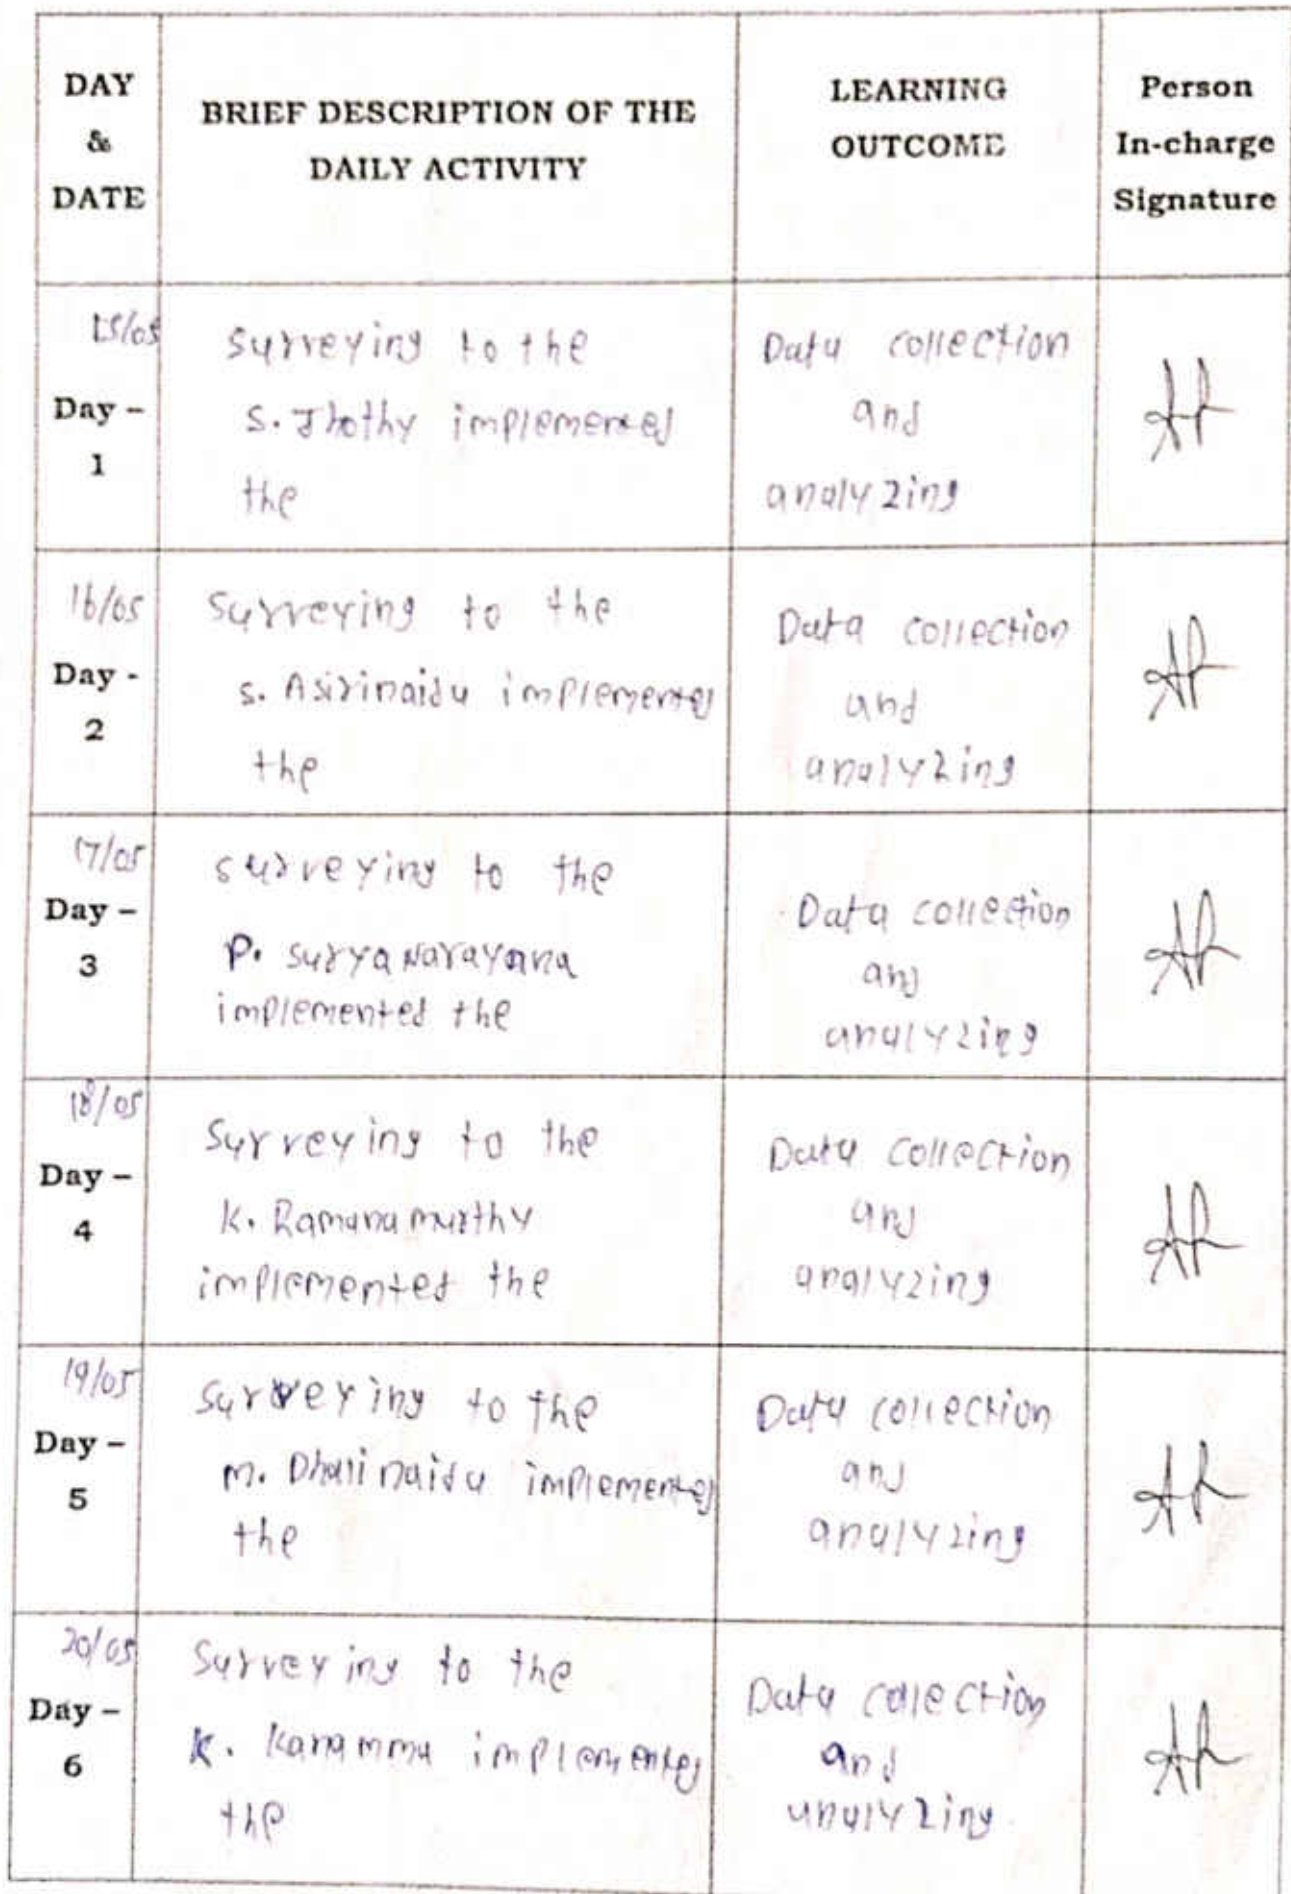 DAY
&
DATE
BRIEF DESCRIPTION OF THE
DAILY ACTIVITY
LEARNING
OUTCOME
Person
In-charge
Signature
15/05
Day –
1
Surveying to the
S. Jhothy implemented
the
Data collection
and
analyzing
16/05
Day -
2
Surveying to the
S. Asirinaidu implemented
the
Data collection
and
analyzing
17/05
Day –
3
surveying to the
P. SuryaNarayana
implemented the
Data collection
and
analyzing
18/05
Day –
4
Surveying to the
K. Ramanamurthy
implemented the
Data collection
and
analyzing
19/05
Day –
5
Surveying to the
M. Dhalinaidu implemented
the
Data collection
and
analyzing
20/05
Day –
6
Surveying to the
K. Kanamma implemented
the
Data collection
and
analyzing.